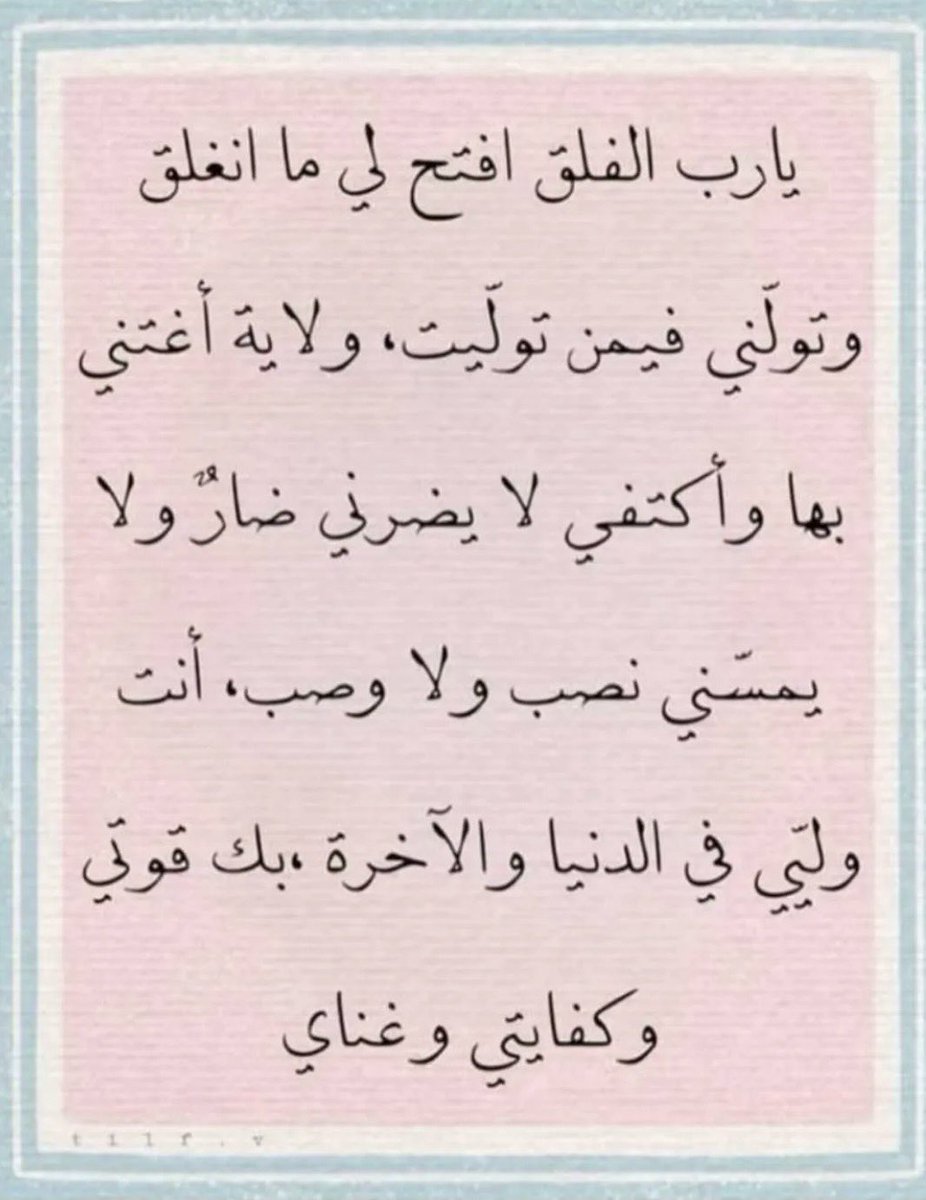 يارب الفلق افتح لي ما انغلق
وتولّني فيمن تولّيت، ولاية أغتني
بها وأكتفي لا يضرني ضارٌّ ولا
يمسّني نصب ولا وصب، أنت
وليّي في الدنيا والآخرة ،بك قوتي
وكفايتي وغناي
t i l f . v